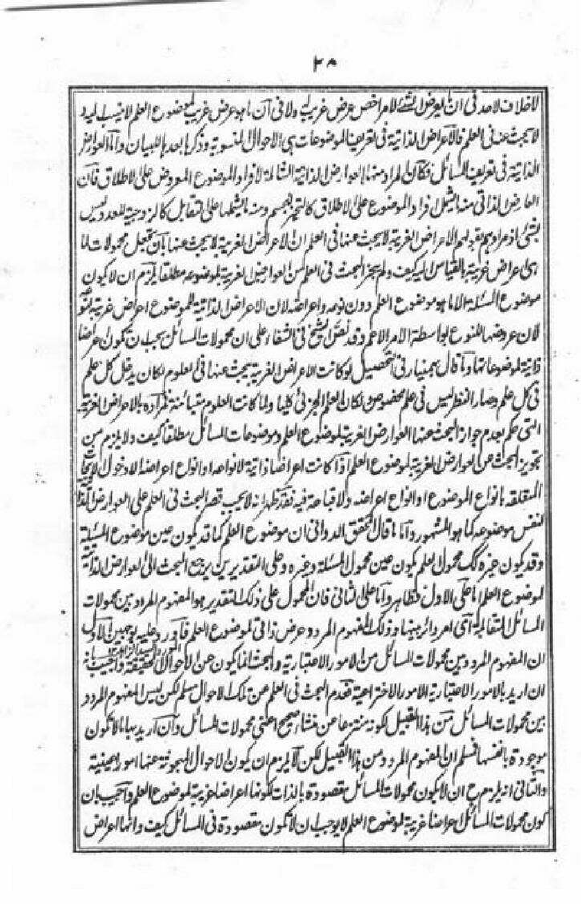 ٢٨
لا خلاف لاحد فى ان العرض الشئ لامر اخص عرض غريب له ولا فى ان ما هو عرض غريب لموضوع العلم لا ينسب اليه
لا يبحث عنه فى العلم فالاعراض الذاتية فى تعريف الموضوعات هى الاحوال المنسوبة وذكرها بعدها للبيان واما العوارض
الذاتية فى تعريف المسائل فكان المراد منها العوارض الذاتية الشاملة لافراد الموضوع المعروض على الاطلاق فان
العارض الذاتى منه ما يشمل افراد الموضوع على الاطلاق كالتحيز للجسم ومنه ما يشملها على التقابل كالزوجية للعدد ليس
بشئ اذ مرادهم بقولهم الاعراض الغريبة لا يبحث عنها فى العلم ان الاعراض الغريبة لا يبحث عنها بان تجعل محمولات لما
هى اعراض غريبة بالقياس اليه كيف ولو لم يجز البحث فى العلم عن العوارض الغريبة لموضوعه مطلقا يلزم ان لا يكون
موضوع المسئلة الا ما هو موضوع العلم دون نوعه واعراضه لان الاعراض الذاتية للموضوع اعراض غريبة لنوعه
لان عروضها للنوع بواسطة الامر الاعم وقد نص الشيخ فى الشفاء على ان محمولات المسائل يجب ان تكون اعراضا
ذاتية لموضوعاتها وما قال بهمنيار فى التحصيل لو كانت الاعراض الغريبة يبحث عنها فى العلوم لكان يدخل كل علم
فى كل علم وصار النظر ليس فى علم مخصوص لكان العلم الجزئى كليا ولما كانت العلوم متباينة فمراده بالاعراض الغريبة
التى حكم بعدم جواز البحث عنها العوارض الغريبة لموضوع العلم وموضوعات المسائل مطلقا كيف ولا يلزم من
تجويز البحث عن العوارض الغريبة لموضوع العلم اذا كانت اعراضا ذاتية لانواعه او انواع اعراضه الا دخول الابحاث
المتعلقة بانواع الموضوع او انواع اعراضه ولا قباحة فيه فقد ظهر انه لا يجب قصر البحث فى العلم على العوارض الذاتية
لنفس موضوعه كما هو المشهور واما ما قال المحقق الدوانى ان موضوع العلم كما قد يكون عين موضوع المسئلة
وقد يكون غيره كذلك محمول العلم يكون عين محمول المسئلة وغيره وعلى التقديرين يرجع البحث الى العوارض الذاتية
لموضوع العلم اما على الاول فظاهر واما على الثانى فان المحمول على ذلك التقدير هو المفهوم المردد بين محمولات
المسائل المتقابلة اى امر دائر بينها وذلك المفهوم المردد عرض ذاتى لموضوع العلم فاورد عليه بوجهين الاول
ان المفهوم المردد بين محمولات المسائل من الامور الاعتبارية والبحث انما يكون عن الاحوال الحقيقية واجيب بانه
ان اريد بالامور الاعتبارية الامور الاختراعية فعدم البحث فى العلم عن تلك الاحوال مسلم لكن ليس المفهوم المردد
بين محمولات المسائل من هذا القبيل لكونه منتزعا عن منشاء صحيح اعنى محمولات المسائل وان اريد بها ما لا تكون
موجودة بانفسها فسلم ان المفهوم المردد من هذا القبيل لكن لا يلزم ان يكون الاحوال المبحوثة عنها امورا عينية
والثانى انه يلزم ح ان لا يكون محمولات المسائل مقصودة بالذات لكونها اعراضا غريبة لموضوع العلم واجيب بان
كون محمولات المسائل اعراضا غريبة لموضوع العلم لا يوجب ان لا تكون مقصودة فى المسائل كيف وانها اعراض